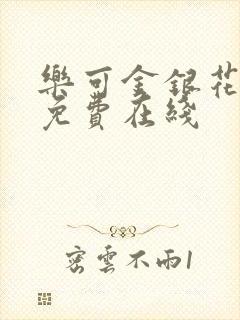 樂可金銀花
免費在綫
密雲不雨1